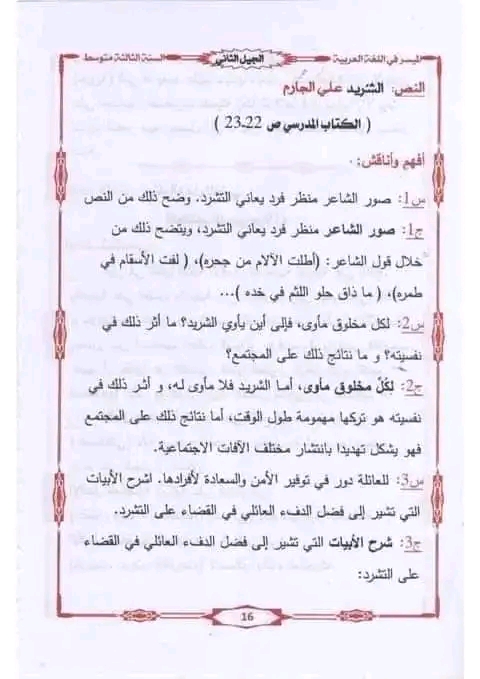 الميسر في اللغة العربية الجيل الثاني السنة الثالثة متوسط
النص: الشريد علي الجارم
( الكتاب المدرسي ص 22-23 )
أفهم وأناقش:
س1: صور الشاعر منظر فرد يعاني التشرد. وضح ذلك من النص
ج1: صور الشاعر منظر فرد يعاني التشرد، ويتضح ذلك من
خلال قول الشاعر: (أطلت الآلام من جحره)، ( لفت الأسقام في
طمره)، ( ما ذاق حلو اللثم في خده )...
س2: لكل مخلوق مأوى، فإلى أين يأوي الشريد؟ ما أثر ذلك في
نفسيته؟ و ما نتائج ذلك على المجتمع؟
ج2: لكل مخلوق مأوى، أما الشريد فلا مأوى له، و أثر ذلك في
نفسيته هو تركها مهمومة طول الوقت، أما نتائج ذلك على المجتمع
فهو يشكل تهديدا بانتشار مختلف الآفات الاجتماعية.
س3: للعائلة دور في توفير الأمن والسعادة لأفرادها. اشرح الأبيات
التي تشير إلى فضل الدفء العائلي في القضاء على التشرد.
ج3: شرح الأبيات التي تشير إلى فضل الدفء العائلي في القضاء
على التشرد:
16